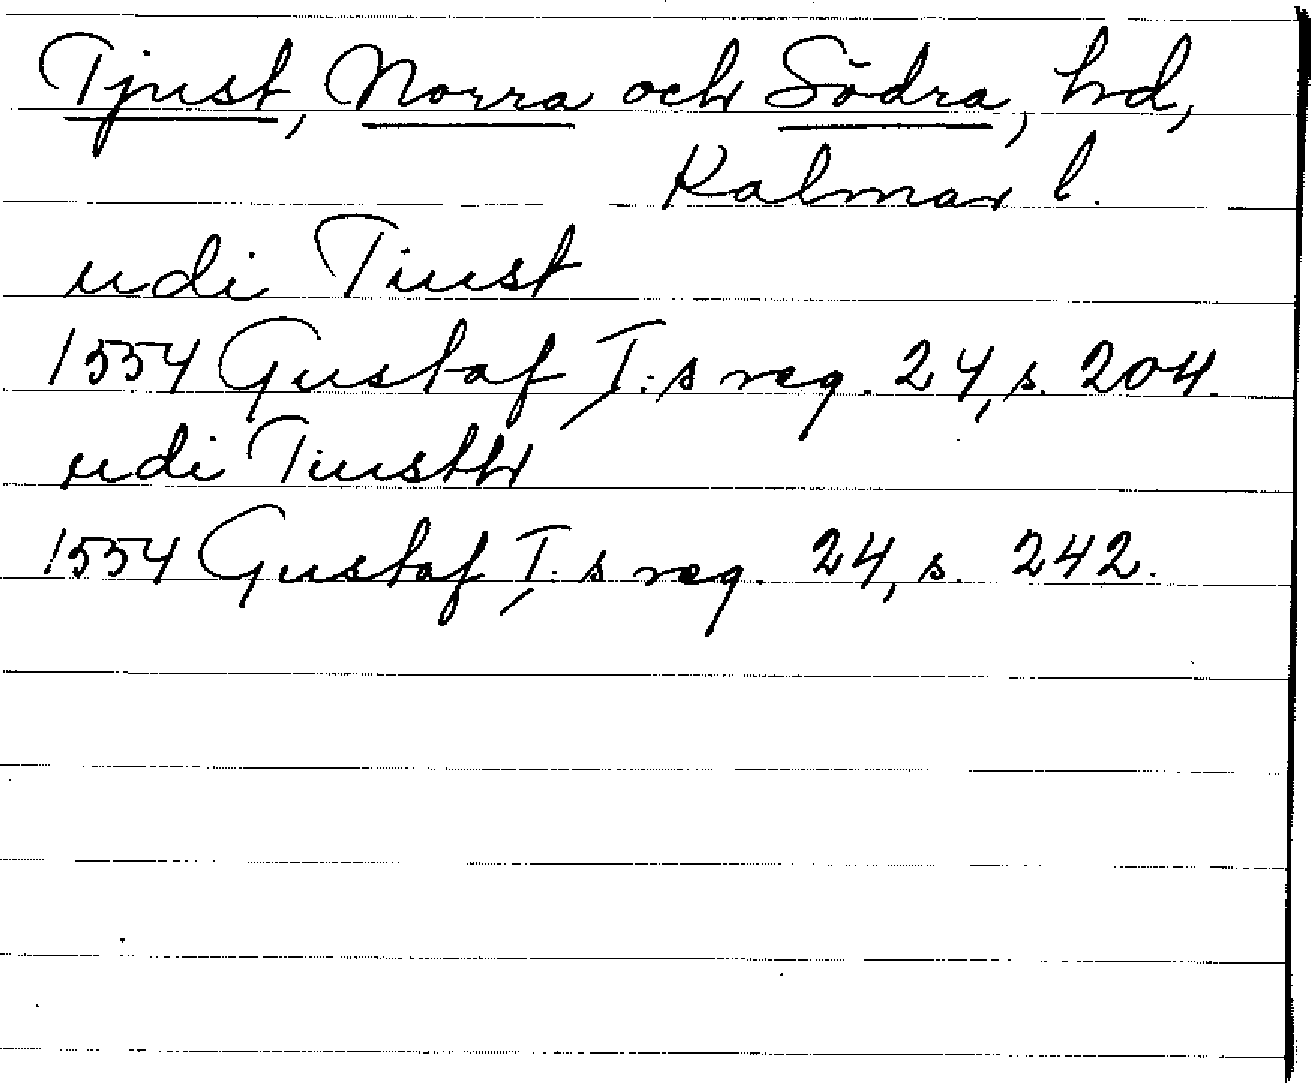 Tjust, Norra och Södra, hd,
Kalmar l.
udi Tiust
1554 Gustaf I:s reg. 24, s. 204.
udi Tiusth
1554 Gustaf I:s reg. 24, s. 242.